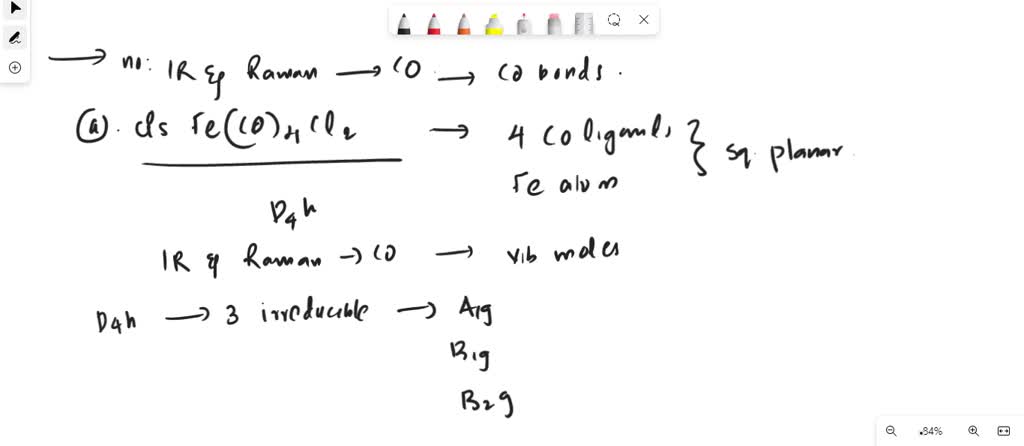 → no: IR & Raman → CO → CO bonds.
(a). cis Fe(CO)4Cl2 → 4 CO ligands } sq. planar.
Fe atom
D4h
IR & Raman → CO → vib modes
D4h → 3 irreducible → A1g
B1g
B2g
84%